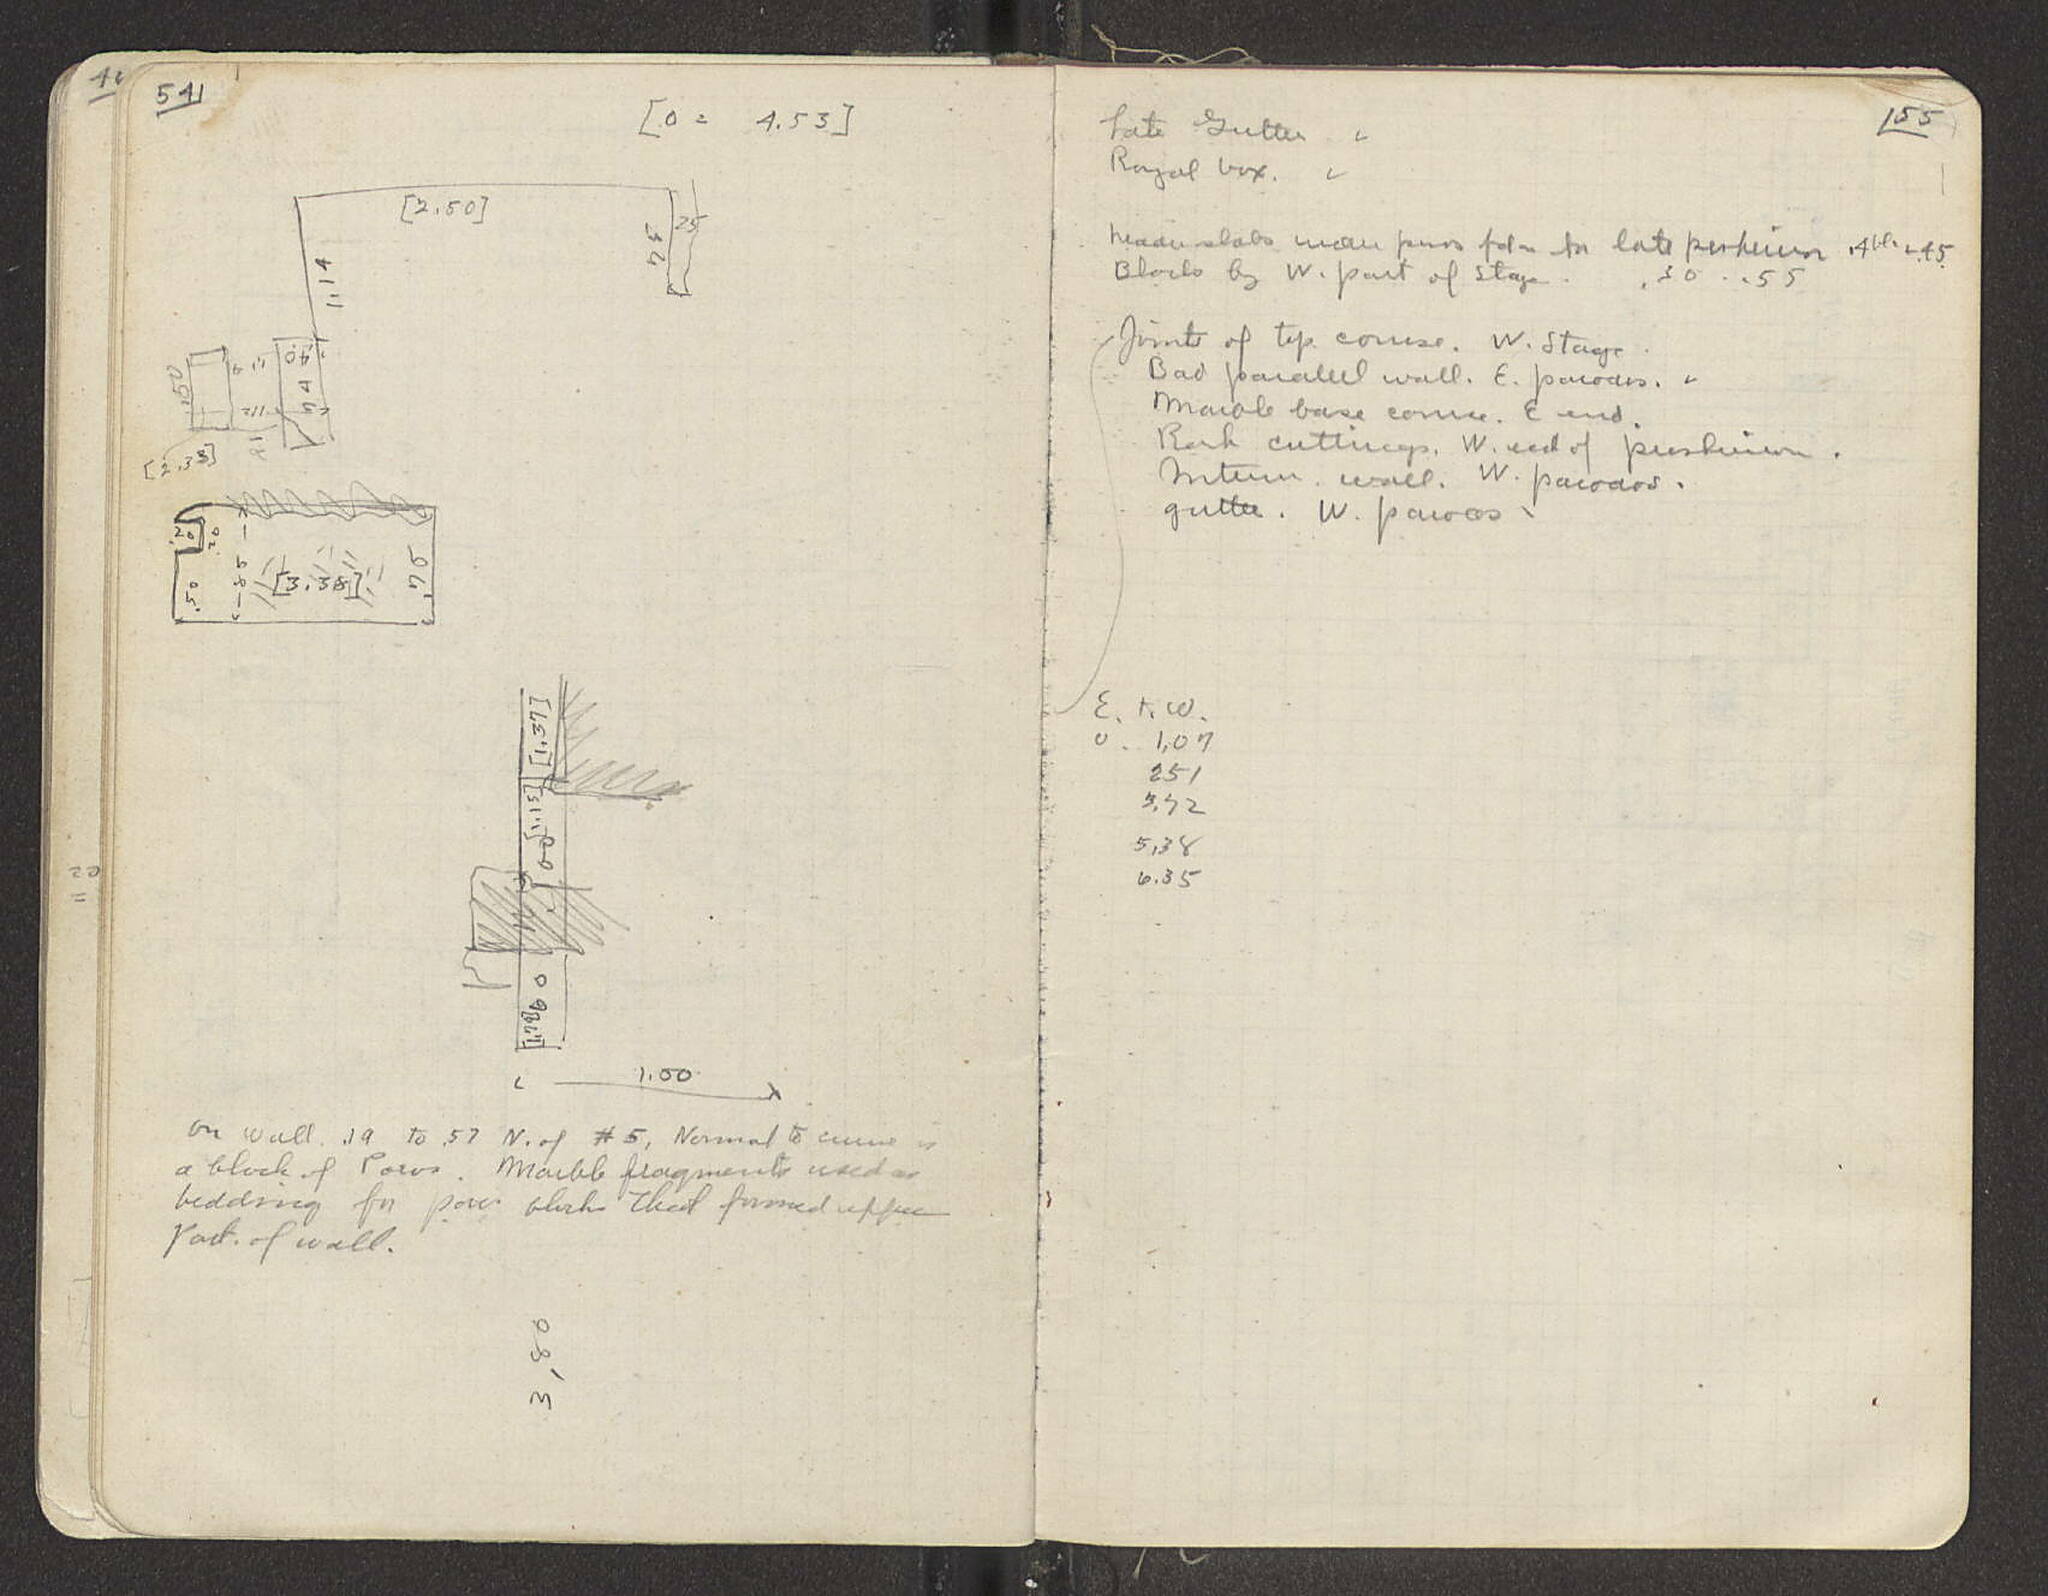 541
[0 = 4.53]
[2.50]
25
.75
1.14
.40
.94
.50
.11
[2.38]
.20
.20
.50
.85
[3.38]
.70
[1.57]
[1.15]
0
0
1.00
on wall .19 to .57 N. of #5, Normal to curve is
a block of Poros. Marble fragments used as
bedding for poros blocks that formed upper
Part. of wall.
3.80
155
Late Gutter
Royal box.
slabs poros fdn for late proskenion .45
Blocks by W. part of Stage . .30 - .55
Joints of top course. W. Stage.
Bad parallel wall. E. parodos.
Marble base course. E end.
Rock cuttings. W. end of proskenion.
wall. W. parodos.
gutter. W. parodos
E. t. W.
0. 1.07
251
3.72
5.38
6.35